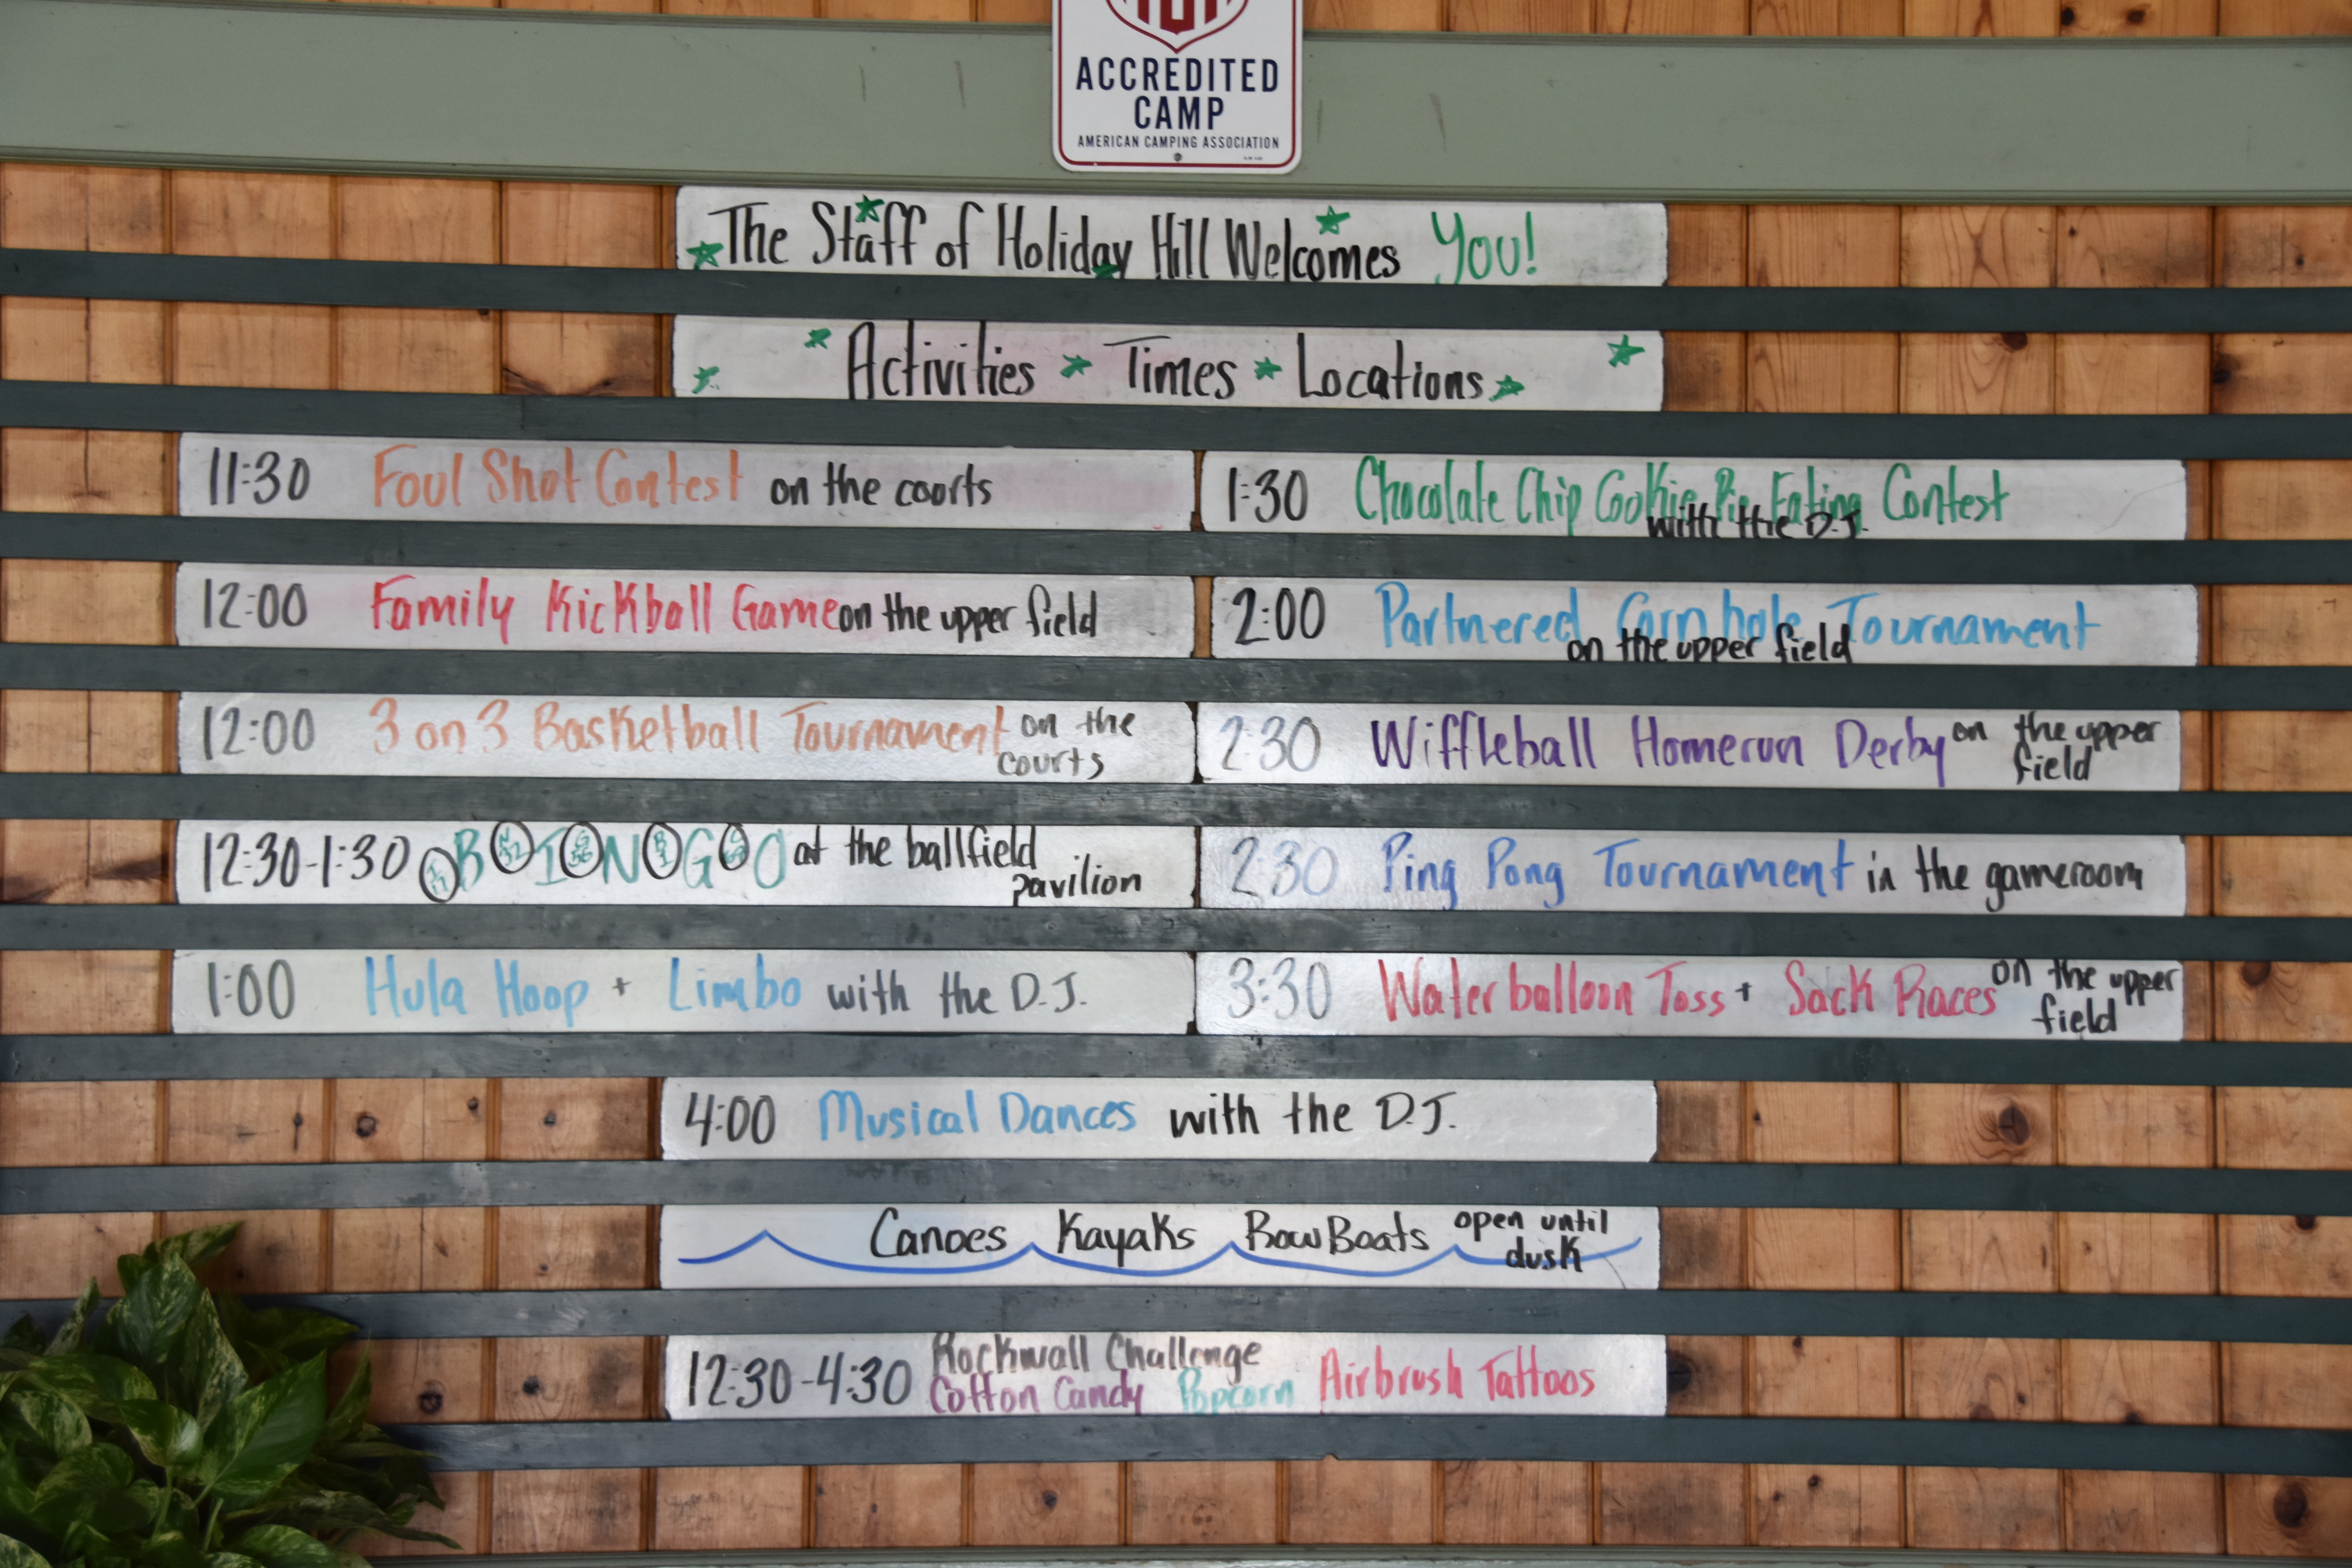 ACCREDITED
CAMP
AMERICAN CAMPING ASSOCIATION
The Staff of Holiday Hill Welcomes You!
Activities Times Locations
11:30 Foul Shot Contest on the courts
12:00 Family Kickball Game on the upper field
12:00 3 on 3 Basketball Tournament on the
courts
12:30-1:30 B I N G O at the ballfield
pavilion
1:00 Hula Hoop + Limbo with the D.J.
1:30 Chocolate Chip Cookie Pie Eating Contest
with the D.J.
2:00 Partnered Cornhole Tournament
on the upper field
2:30 Wiffleball Homerun Derby on the upper
field
2:30 Ping Pong Tournament in the gameroom
3:30 Water balloon Toss + Sack Races on the upper
field
4:00 Musical Dances with the D.J.
Canoes Kayaks RowBoats open until
dusk
12:30-4:30 Rockwall Challenge
Cotton Candy Popcorn Airbrush Tattoos